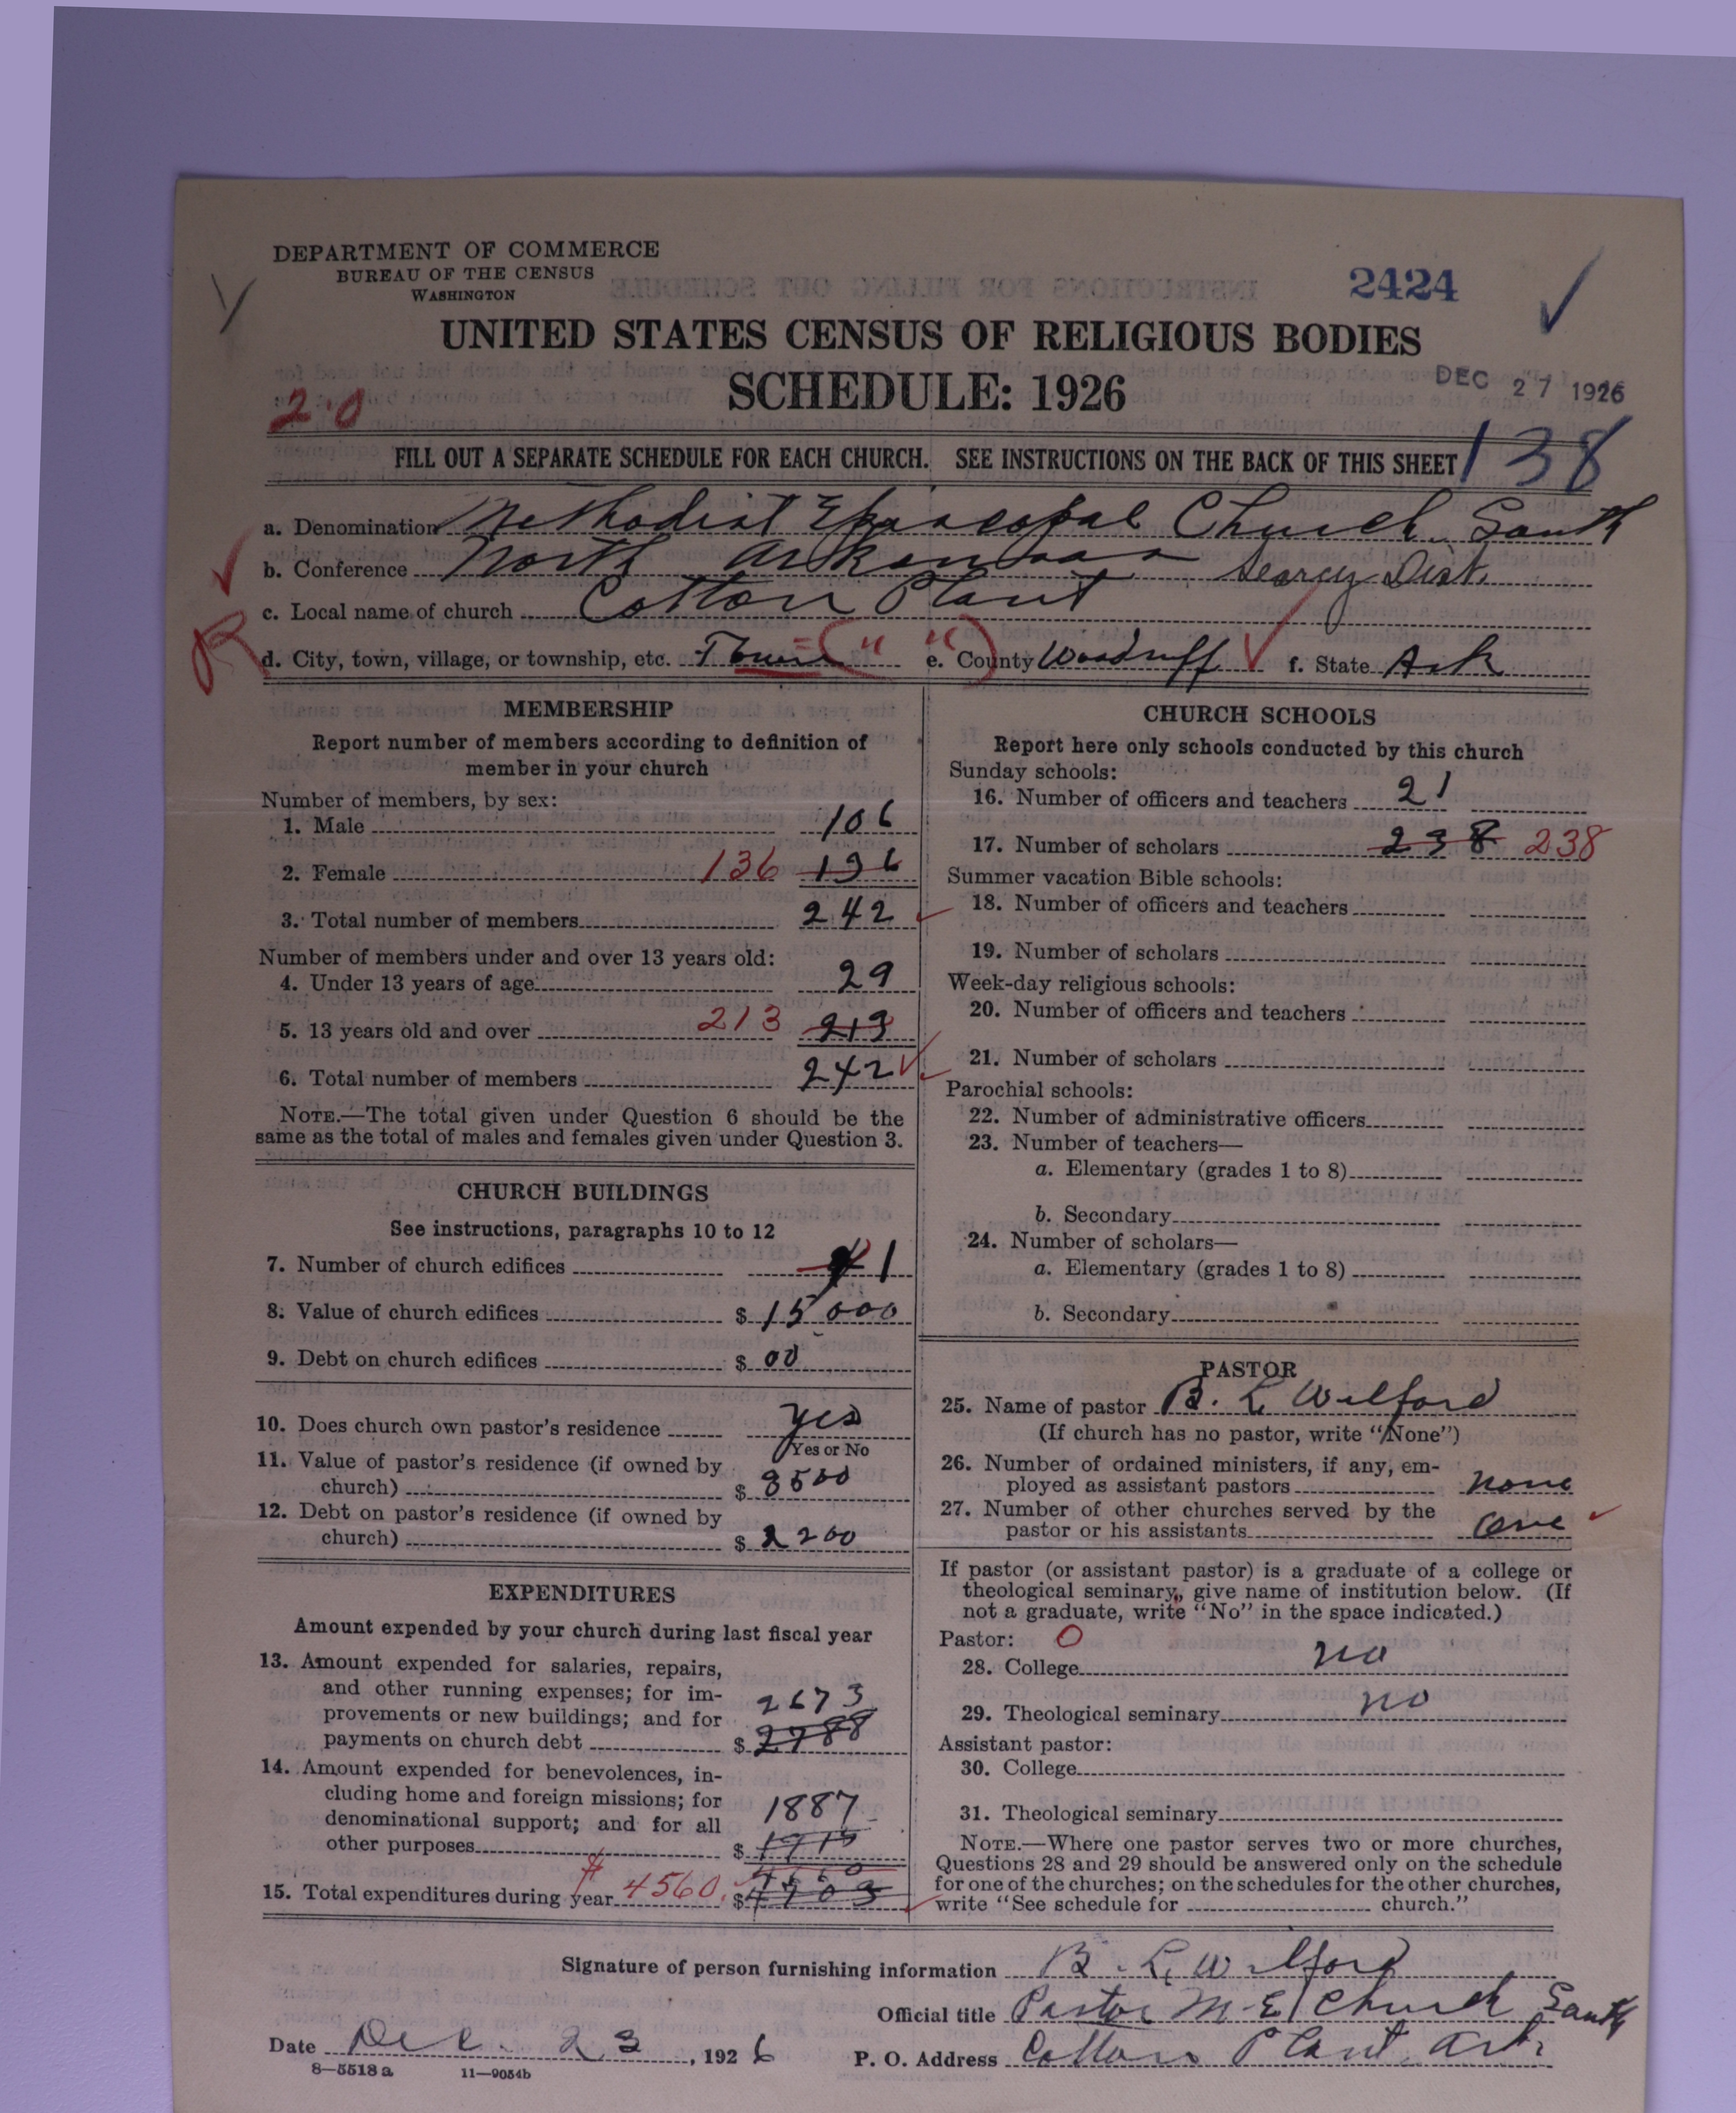 DEPARTMENT OF COMMERCE
BUREAU OF THE CENSUS
WASHINGTON
2424
UNITED STATES CENSUS OF RELIGIOUS BODIES
SCHEDULE: 1926
DEC 27 1926
2.0
FILL OUT A SEPARATE SCHEDULE FOR EACH CHURCH. SEE INSTRUCTIONS ON THE BACK OF THIS SHEET
138
a. Denomination Methodist Episcopal Church South
b. Conference North Arkansas Searcy Dist.
c. Local name of church Cotton Plant
d. City, town, village, or township, etc. Town = (" ") e. County Woodruff f. State Ark
MEMBERSHIP
Report number of members according to definition of
member in your church
Number of members, by sex:
1. Male 106
2. Female 136 136
3. Total number of members 242
Number of members under and over 13 years old:
4. Under 13 years of age 29
5. 13 years old and over 213 213
6. Total number of members 242
NOTE.—The total given under Question 6 should be the
same as the total of males and females given under Question 3.
CHURCH BUILDINGS
See instructions, paragraphs 10 to 12
7. Number of church edifices 1
8. Value of church edifices $ 15000
9. Debt on church edifices $ 00
10. Does church own pastor's residence yes
Yes or No
11. Value of pastor's residence (if owned by
church) $ 3500
12. Debt on pastor's residence (if owned by
church) $ 2200
EXPENDITURES
Amount expended by your church during last fiscal year
13. Amount expended for salaries, repairs,
and other running expenses; for im-
provements or new buildings; and for 2673
payments on church debt $ 2788
14. Amount expended for benevolences, in-
cluding home and foreign missions; for
denominational support; and for all 1887
other purposes $ 1915
15. Total expenditures during year $ 4560. $ 4703
CHURCH SCHOOLS
Report here only schools conducted by this church
Sunday schools:
16. Number of officers and teachers 21
17. Number of scholars 238 238
Summer vacation Bible schools:
18. Number of officers and teachers
19. Number of scholars
Week-day religious schools:
20. Number of officers and teachers
21. Number of scholars
Parochial schools:
22. Number of administrative officers
23. Number of teachers—
a. Elementary (grades 1 to 8)
b. Secondary
24. Number of scholars—
a. Elementary (grades 1 to 8)
b. Secondary
PASTOR
25. Name of pastor B. L. Wilford
(If church has no pastor, write "None")
26. Number of ordained ministers, if any, em-
ployed as assistant pastors none
27. Number of other churches served by the
pastor or his assistants one
If pastor (or assistant pastor) is a graduate of a college or
theological seminary, give name of institution below. (If
not a graduate, write "No" in the space indicated.)
Pastor: O
28. College no
29. Theological seminary no
Assistant pastor:
30. College
31. Theological seminary
NOTE.—Where one pastor serves two or more churches,
Questions 28 and 29 should be answered only on the schedule
for one of the churches; on the schedules for the other churches,
write "See schedule for church."
Signature of person furnishing information B. L. Wilford
Official title Pastor M. E. Church South
Date Dec. 23, 1926 P. O. Address Cotton Plant, Ark
8—5518 a 11—9054b